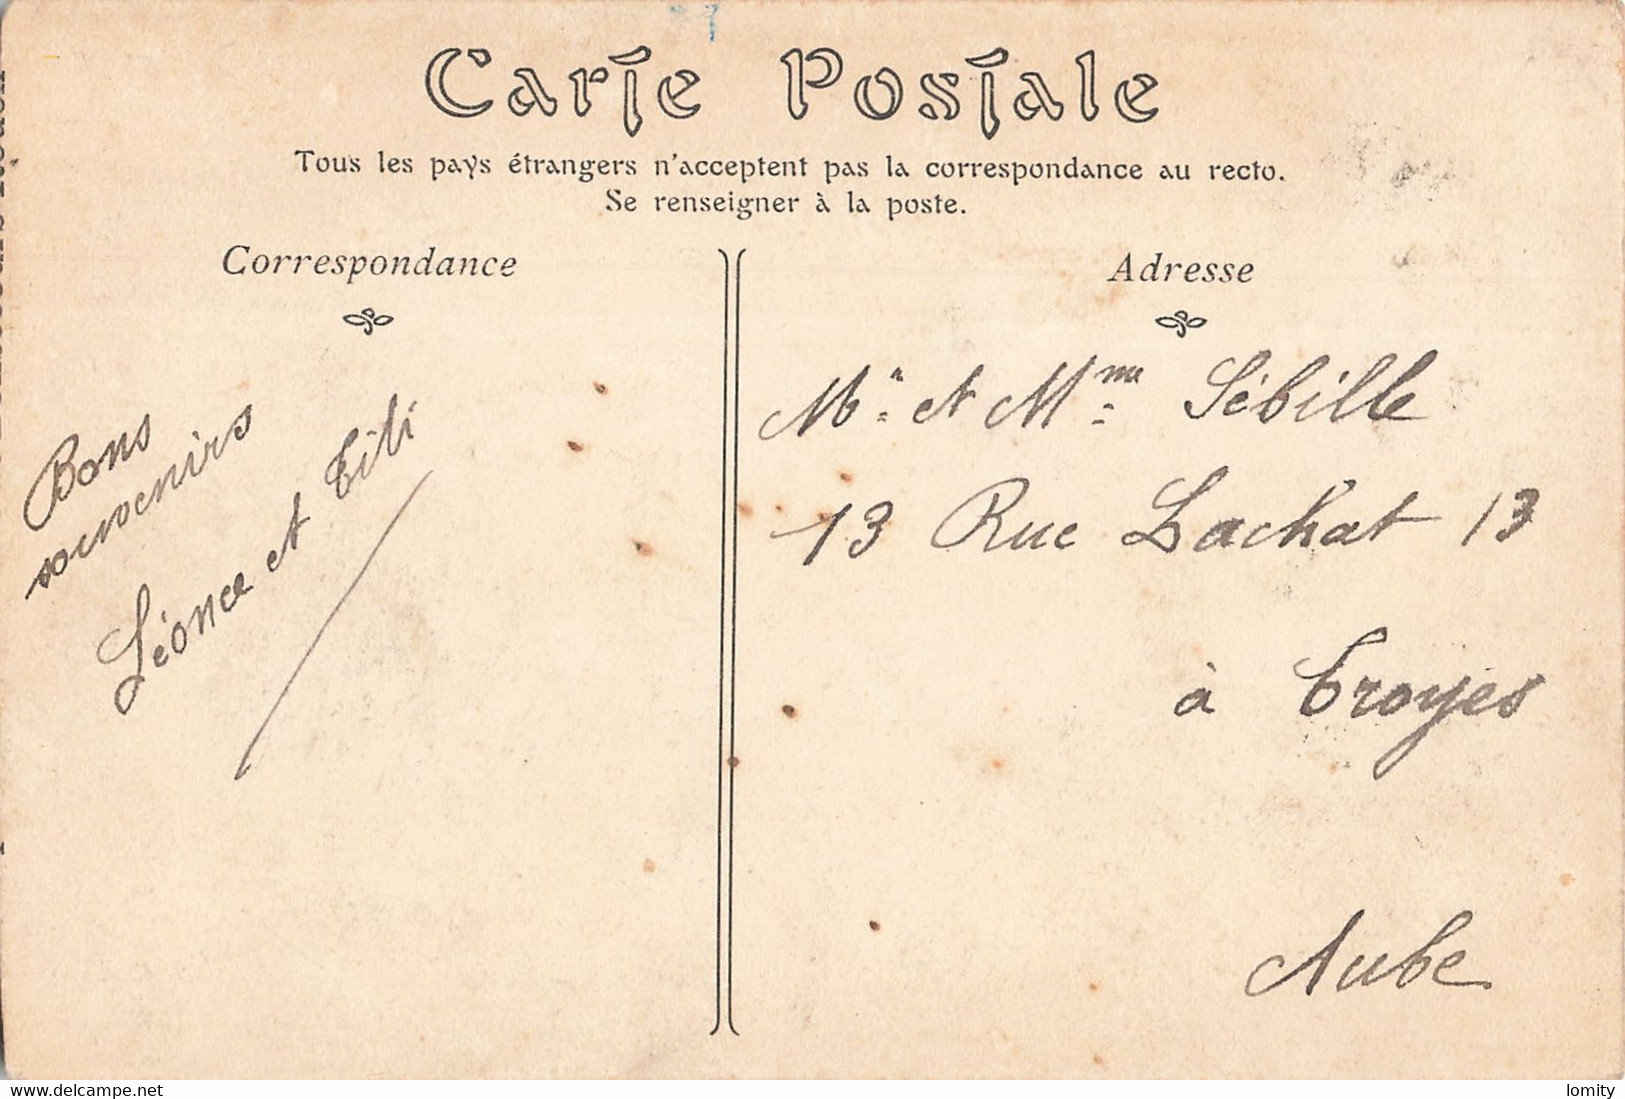 Carte Postale
Tous les pays étrangers n'acceptent pas la correspondance au recto.
Se renseigner à la poste.
Correspondance
Bons
souvenirs
Léonce et Titi
Adresse
Mr. et Mme. Sébille
13 Rue Lachat 13
à Troyes
Aube
www.delcampe.net
lomity